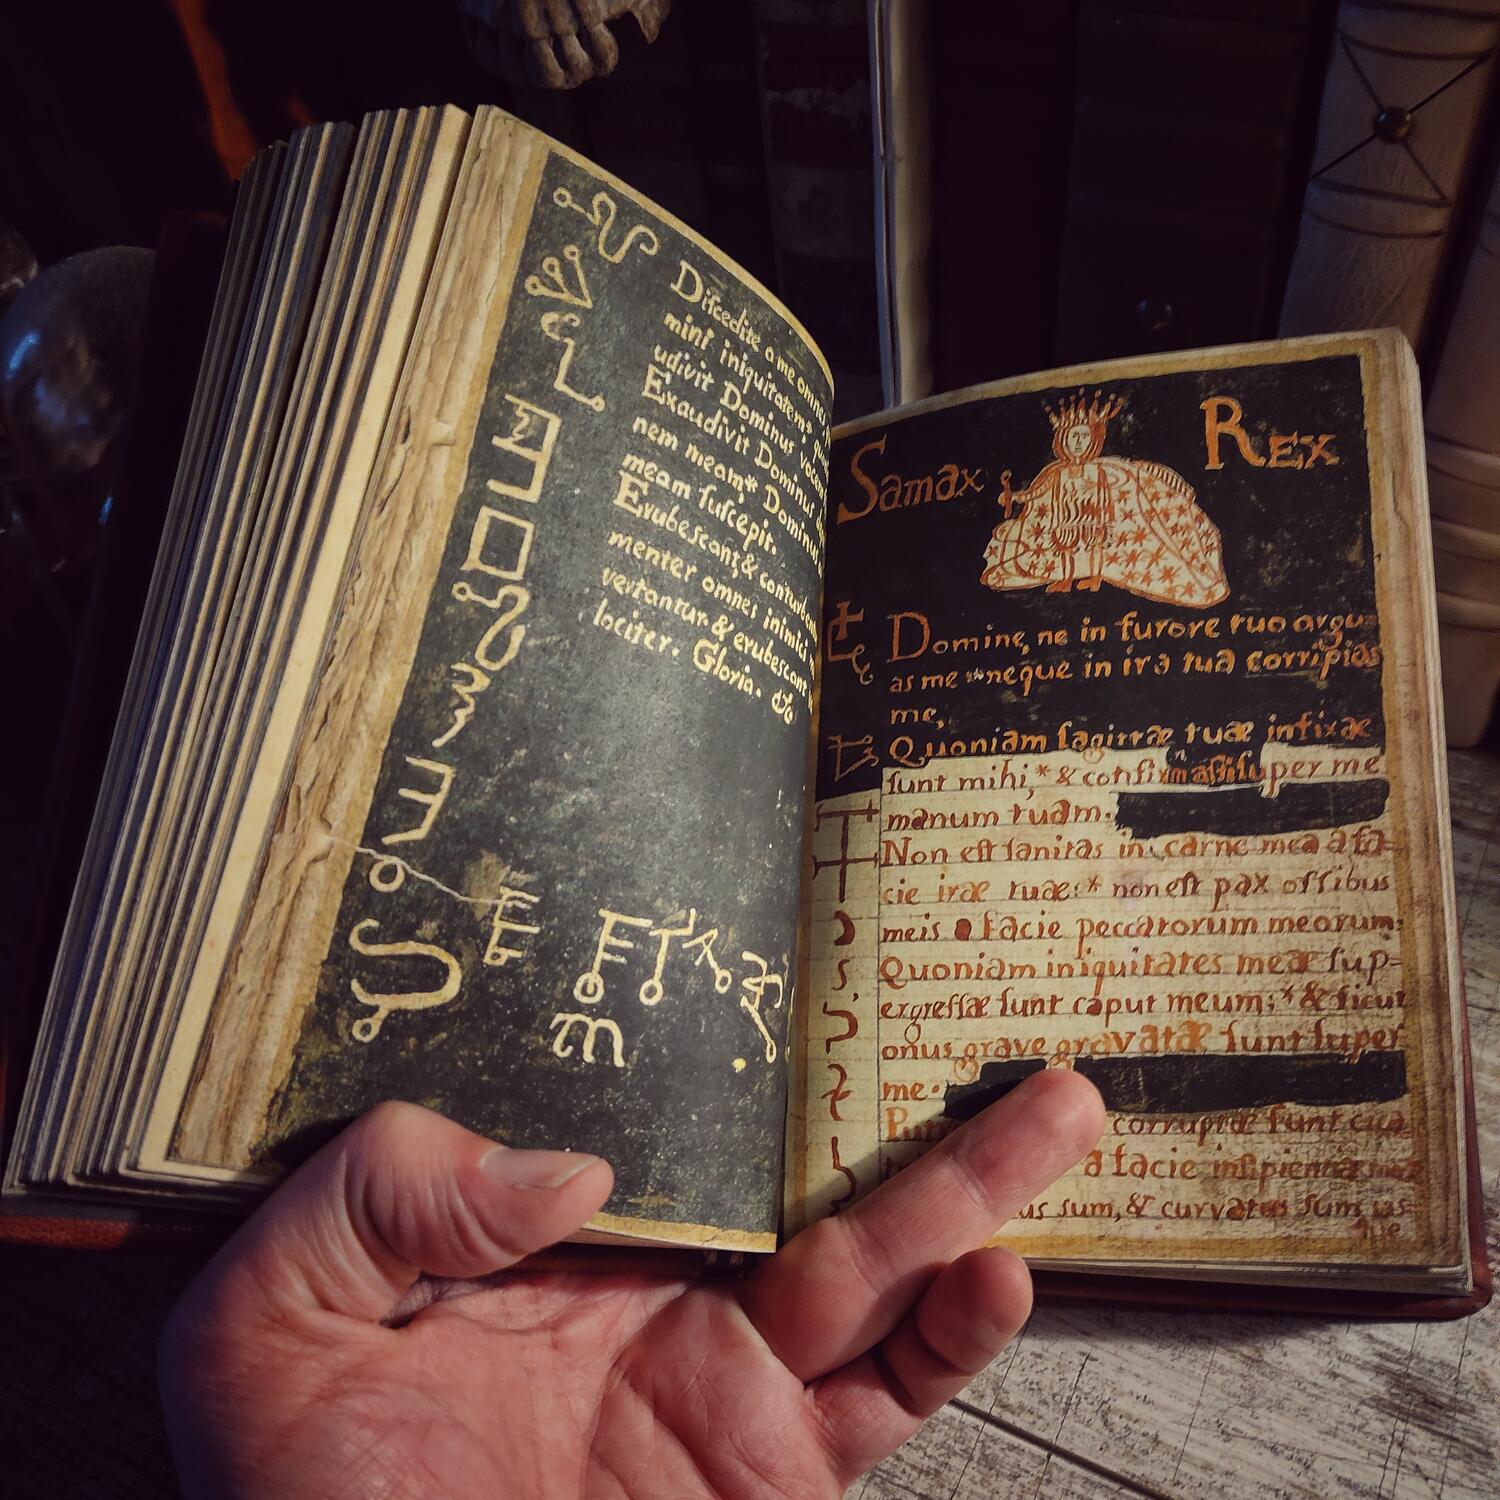 Diſcedite a me omnes
mini iniquitatem*
udivit Dominus vocem
Exaudivit Dominus
nem meam* Dominus
meam ſuſcepit.
Erubescant, & conturbe
menter omnes inimici
vertantur & erubescant
lociter. Gloria. &c
Samax Rex
Domine, ne in furore tuo argu=
as me *neque in ira tua corripias
me,
Quoniam ſagittæ tuæ infixæ
ſunt mihi,* & ſuper me
manum tuam.
Non eſt ſanitas in carne mea a fa=
cie iræ tuæ:* non eſt pax oſſibus
meis a facie peccatorum meorum:
Quoniam iniquitates meæ ſup=
ergreſſæ ſunt caput meum;* & ſicut
onus grave gravatæ ſunt ſuper
me.
corruptæ ſunt cica
a facie inſipientiæ meæ
sum, & curvatus sum us
que